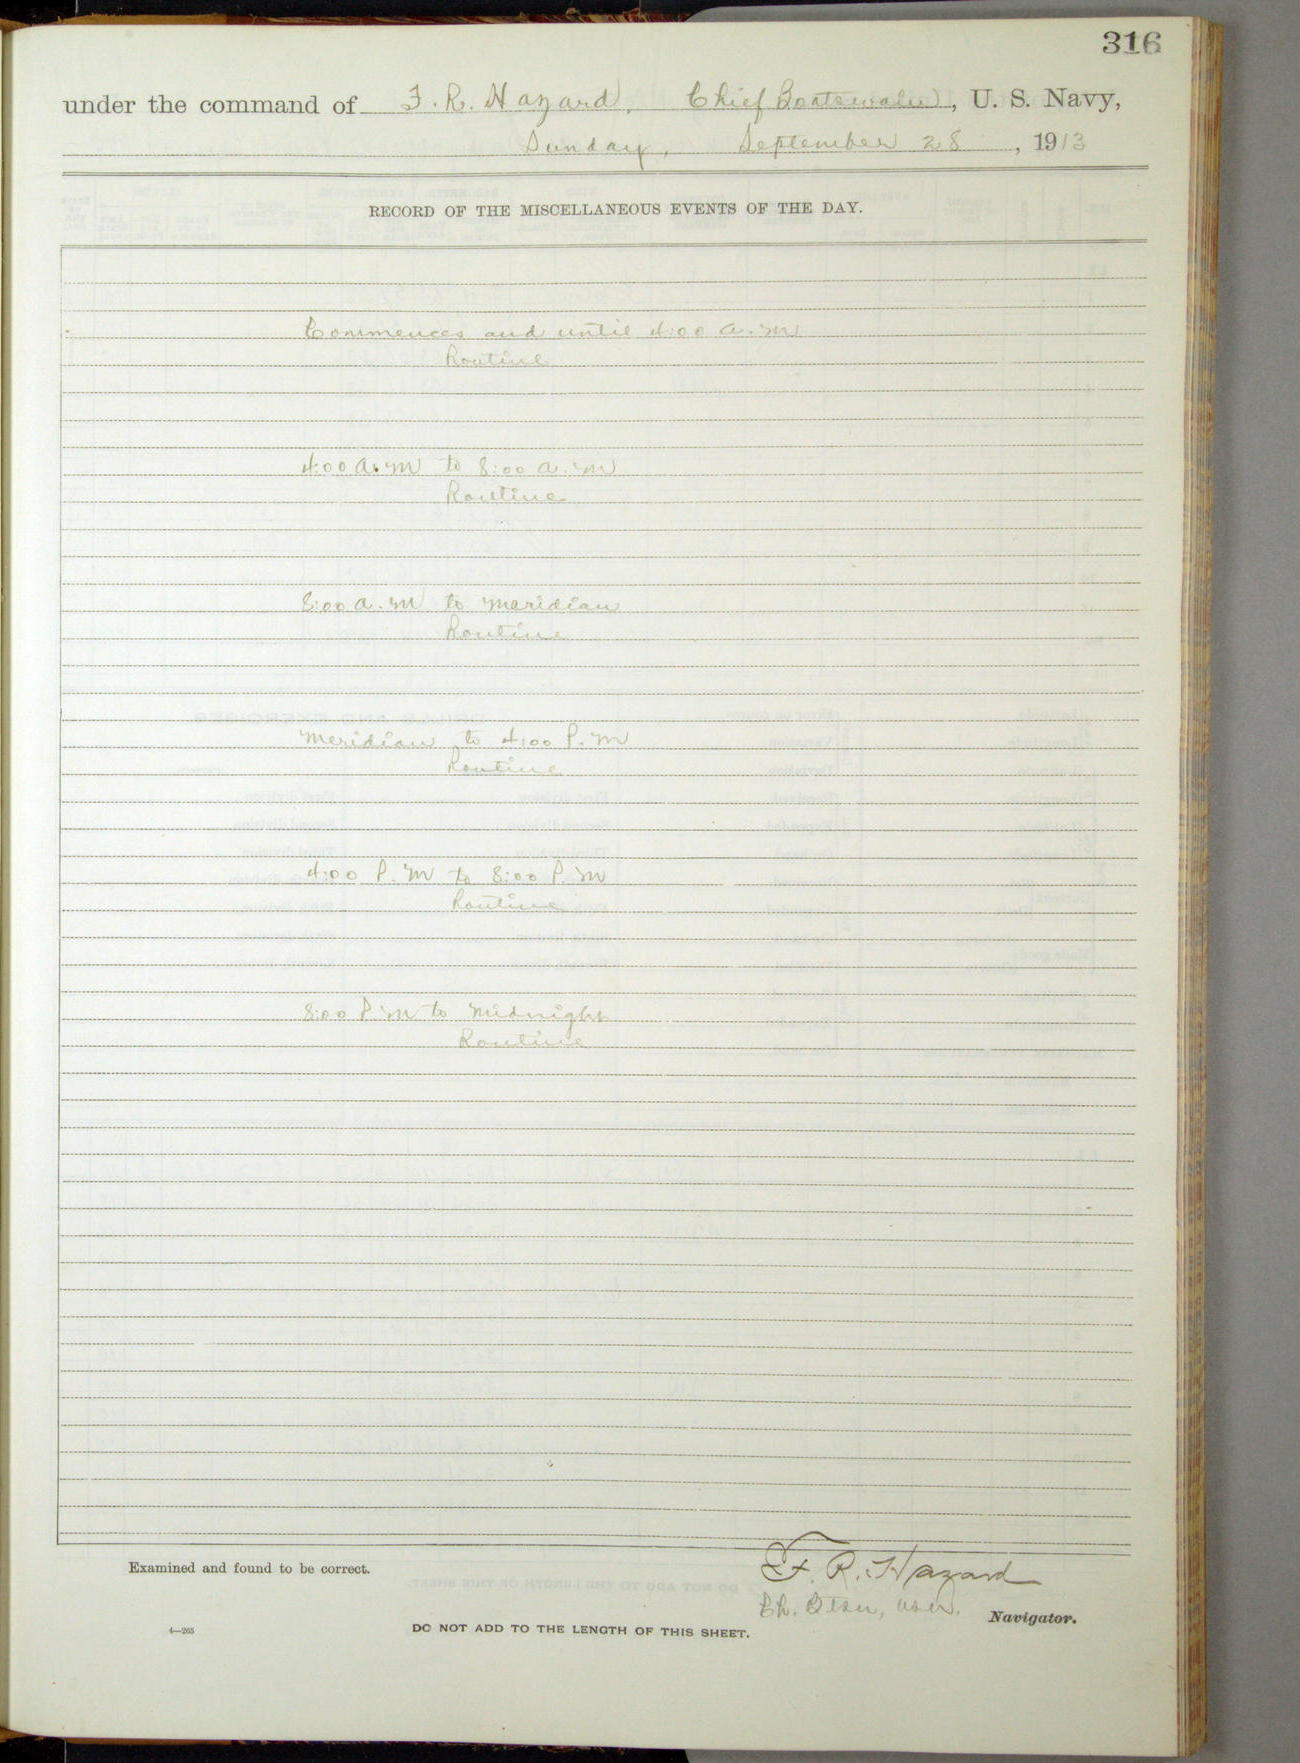 316
under the command of F. R. Hazard, Chief Boatswain, U. S. Navy,
Sunday, September 28, 1913
RECORD OF THE MISCELLANEOUS EVENTS OF THE DAY.
Commences and until 4:00 a.m
Routine
4:00 a.m to 8:00 a.m
Routine
8:00 a.m to meridian
Routine
Meridian to 4:00 P.m
Routine
4:00 P.m to 8:00 P.m
Routine
8:00 P.m to midnight
Routine
Examined and found to be correct.
F. R. Hazard
Ch. Btsn, USN. Navigator.
4—265
DO NOT ADD TO THE LENGTH OF THIS SHEET.